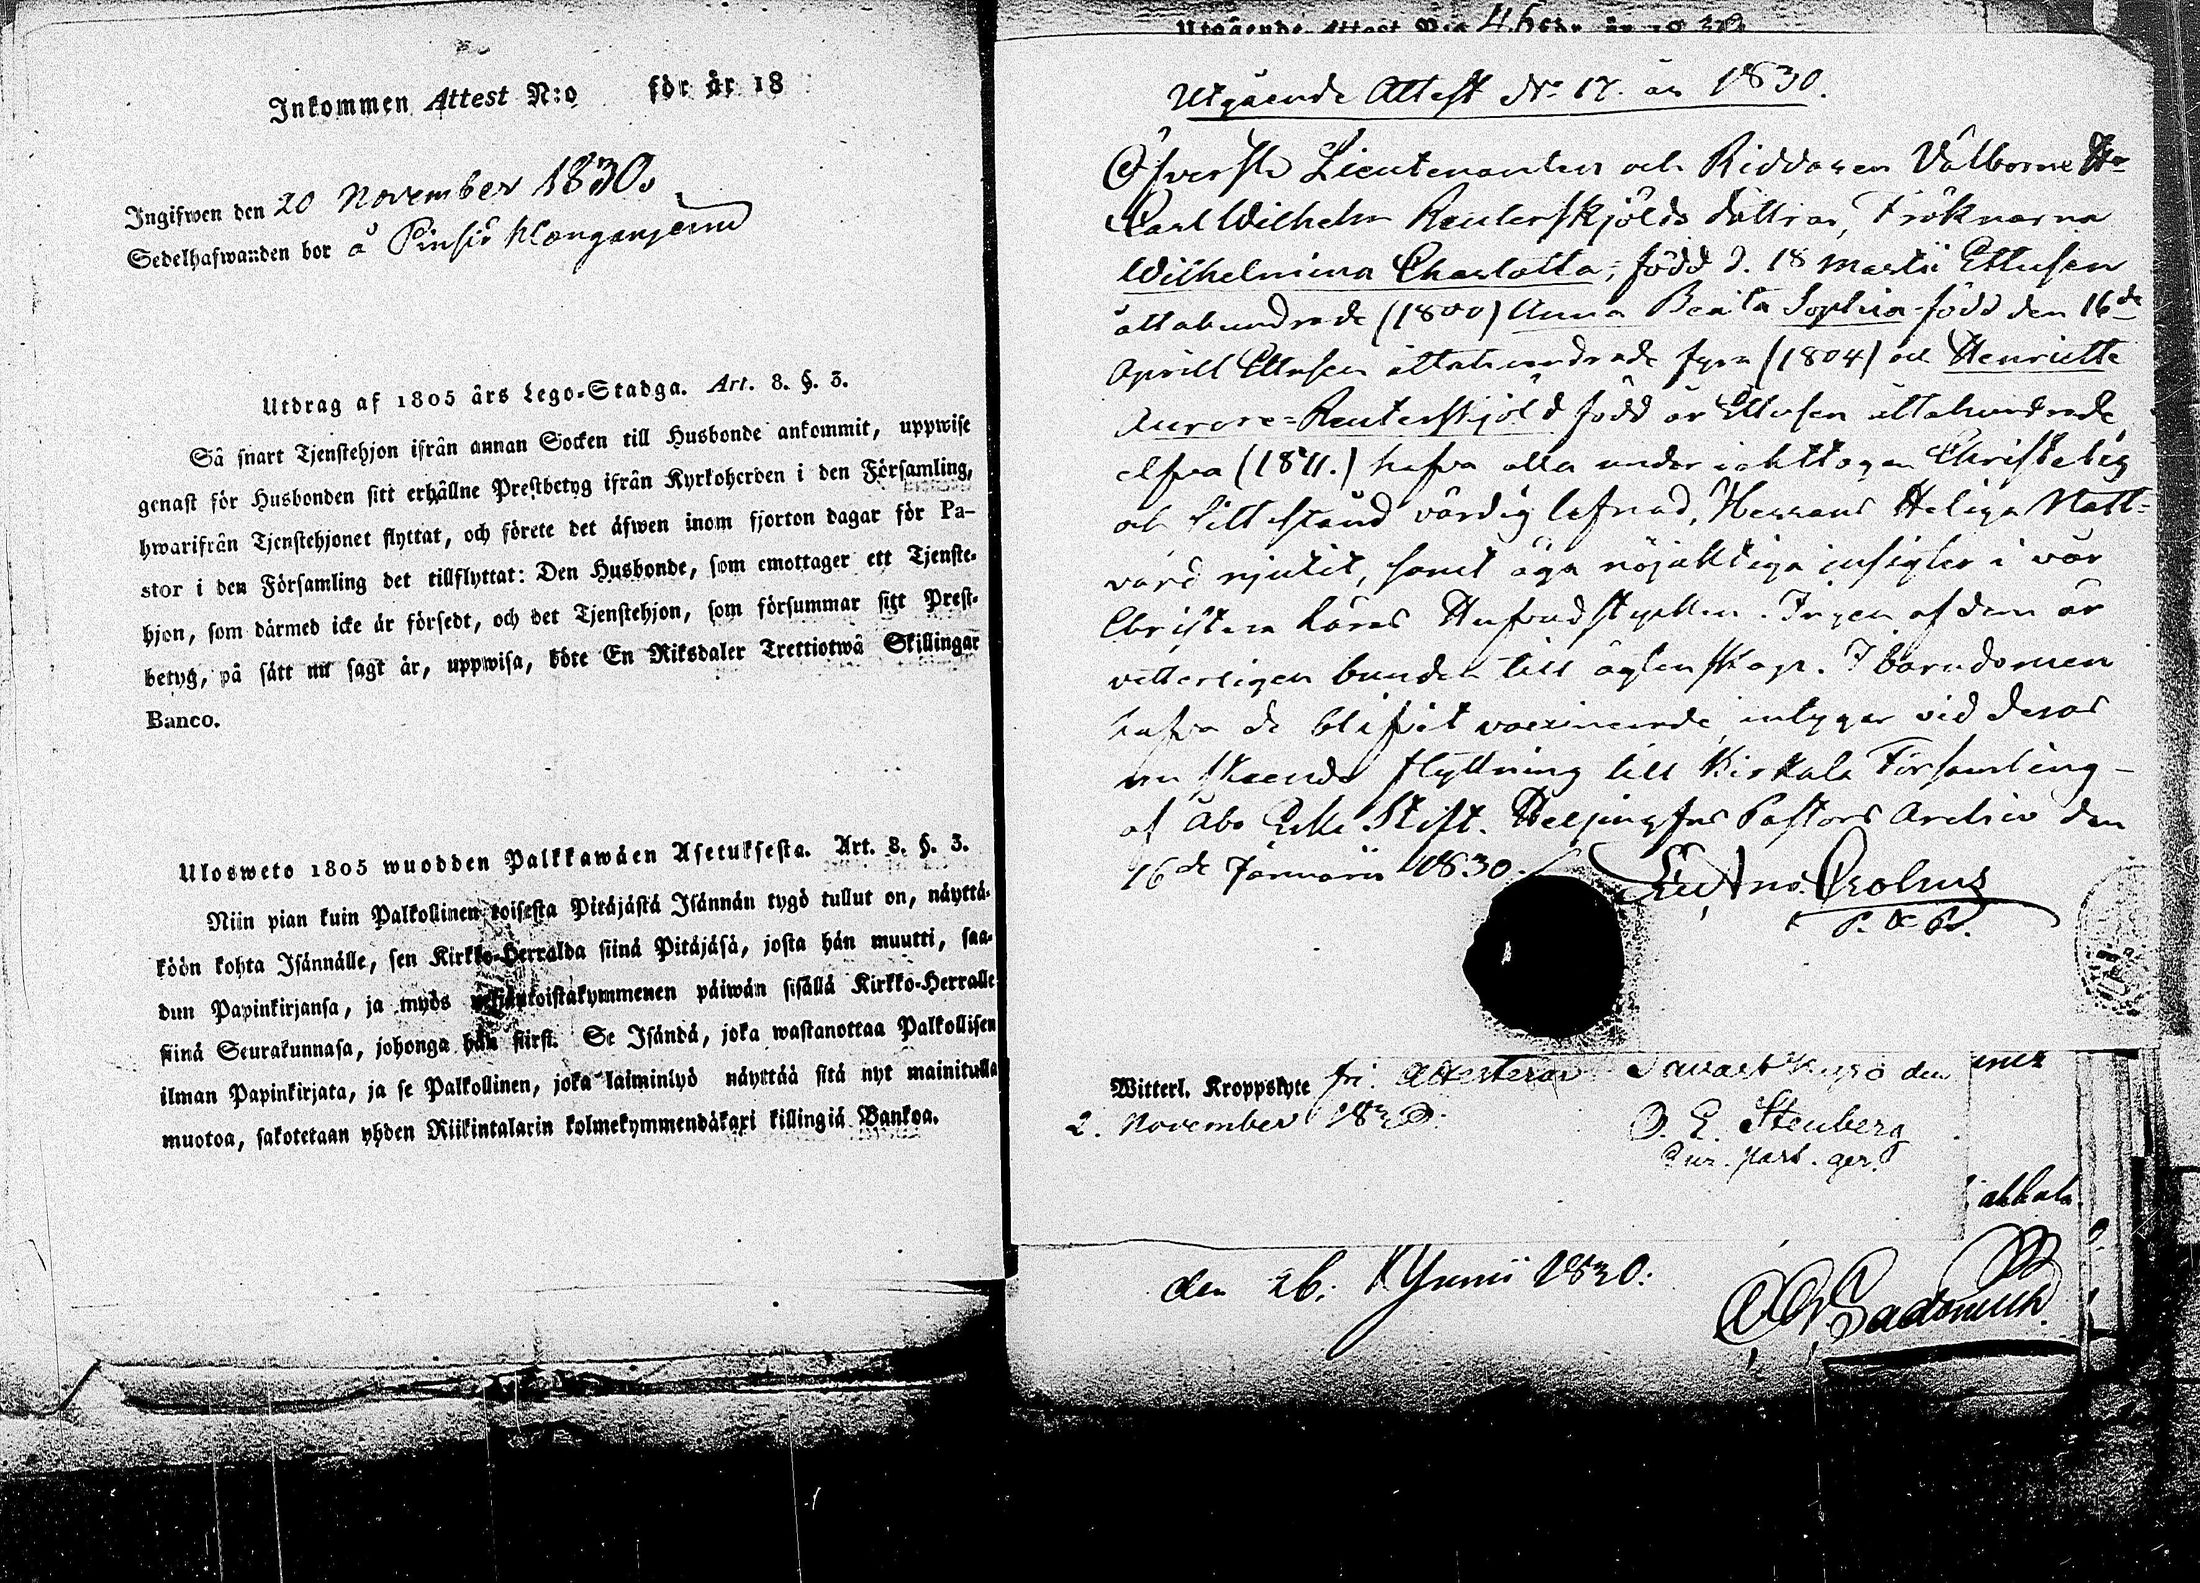 Inkommen Attest N:o för år 18
Ingifwen den 20 November 1830.
Sedelhafwanden bor å Pinsiö
Utdrag af 1805 års Lego-Stadga. Art. 8. §. 3.
Så snart Tjenstehjon ifrån annan Socken till Husbonde ankommit, uppwise
genast för Husbonden sitt erhållne Prestbetyg ifrån Kyrkoherden i den Församling,
hwarifrån Tjenstehjonet flyttat, och förete det äfwen inom fjorton dagar för Pa-
stor i den Församling det tillflyttat: Den Husbonde, som emottager ett Tjenste-
hjon, som därmed icke är försedt, och det Tjenstehjon, som försummar sitt Prest-
betyg, på sätt nu sagt är, uppwisa, böte En Riksdaler Trettiotwå Skillingar
Banco.
Ulosweto 1805 wuodden Palkkawäen Asetuksesta. Art. 8. §. 3.
Niin pian kuin Palkollinen toisesta Pitäjästä Isännän tygö tullut on, näyttä-
köön kohta Isännälle, sen Kirkko-Herralda siinä Pitäjäsä, josta hän muutti, saa-
dun Papinkirjansa, ja myös neljäntoistakymmenen päiwän sisällä Kirkko-Herralle
siinä Seurakunnasa, johonga hän siirst. Se Isändä, joka wastanottaa Palkollisen
ilman Papinkirjata, ja se Palkollinen, joka laiminlyö näyttää sitä nyt mainitulla
muotoa, sakotetaan yhden Riikintalarin kolmekymmendäkaxi killingiä Bankoa.
Utgående Attest N:o 46 för år 1830
Utgående Attest No 17. år 1830.
Öfverste Lieutenanten och Riddaren Välborne Hr
Carl Wilhelm Reuterskjölds döttrar, Fröknarna
Wilhelmina Charlotta, född d. 18 Martii Ettusen
åttahundrade (1800) Anna Beata Sophia född den 16de
Aprill Ettusen åttahundrade fyra (1804) och Henriette
Aurore Reuterskjöld född år Ettusen åttahundrade
elfva (1811.) hafva alla under iakttagen Christelig
och sitt stånd värdig lefnad, Herrans Heliga Natt-
vard njutit, samt äga nöjaktiga insigter i vår
Christna Läras Hufvudstycken. Ingen af dem är
vetterligen bunden till ägtenskap. I barndomen
hafva de blifvit vaccinerade, intygar vid deras
nu skeende flyttning till Kirkala Församling
af Åbo Erke Stift. Helsingfors Pastors Archiv den
16de Januarii 1830.
Witterl. Kroppslyte fri. Attesterar Savastkyrö den
2. November 1830.
O. E. Stenberg
past. ger.
den 26. Junii 1830.